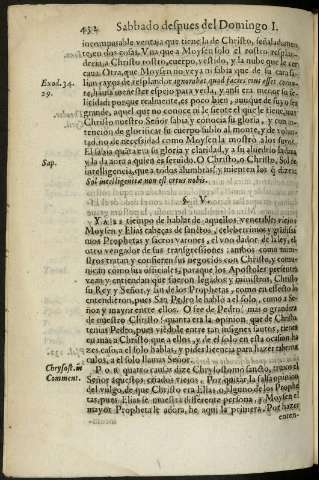 452 Sabbado despues del Domingo I.
incomparable ventaja que tiene la de Christo, señaladamen-
te, en dos cosas. Vna que a Moysen solo el rostro resplan-
decia, a Christo rostro, cuerpo, vestido, y la nube que le cer
caua. Otra, que Moysen no veya ni sabia que de su cara sa-
Exod. 34. lian rayos de resplandor ignorabat quod facies esset
29. te, hasta menester espejo para verla, y assi era menor su fe-
licidad; porque realmente, es poco bien, aunque de suyo sea
grande, aquel que no conoce ni le siente el que le tiene, mas
Christo nuestro Señor sabia, y conocia su gloria, y con in-
tencion de glorificar su cuerpo subio al monte, y de volun-
tad, no de necessidad como Moysen la mostro a los suyos.
El sabia quanta era su gloria y claridad, y a su aluedrio
Sap. y la da nota a quien es seruido. O Christo, o Christo, Sol de
intelligencia, que a todos alumbras, y mienten los q dizen:
Sol intelligentiæ non est ortus nobis.
§. V.
YA es tiempo de hablar de aquellos venerables viejos
Moysen y Elias cabeças de sanctos, celeberrimos y gradissi-
mos Prophetas y sacros varones, el vno dador de la ley, el
otro vengador de sus transgressiones: ambos como mini-
stros tratan y confieren sus negocios con Christo, y comu-
nican como sus officiales, paraque los Apostoles presentes
vean y entiendan que fueron legados y ministros, Christo
su Rey y Señor, y fin de los Prophetas, como en effecto lo
entendieron, pues San Pedro le hablo a el solo, como a Se-
ñor y mayor entre ellos. O fee de Pedro! mas o grandeza
de nuestro Christo! quanta era la opinion, que de Christo
tenias Pedro, pues viendole entre tan insignes sanctos, tienes
en mas a Christo que a ellos, y de el solo en esta ocasion ha
zes caso, a el solo hablas, y pides licencia para hazer taberna
culos, a el solo llamas Señor.
Chrysost. in POR quatro causas dize Chrysostomo sancto, truxo el
Comment. Señor aquestos criados viejos. Por quitar la falsa opinion
del vulgo, de que Christo era Elias, o alguno de los Prophe
tas, pues Elias se muestra differente persona, y Moysen el
mayor Propheta le adora, he aqui la primera. Por hazer
enten-